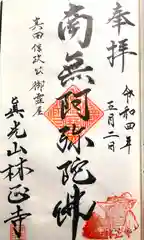 奉拝
令和四年
五月二日
南無阿弥陀佛
真田信政公御霊屋
真光山林正寺